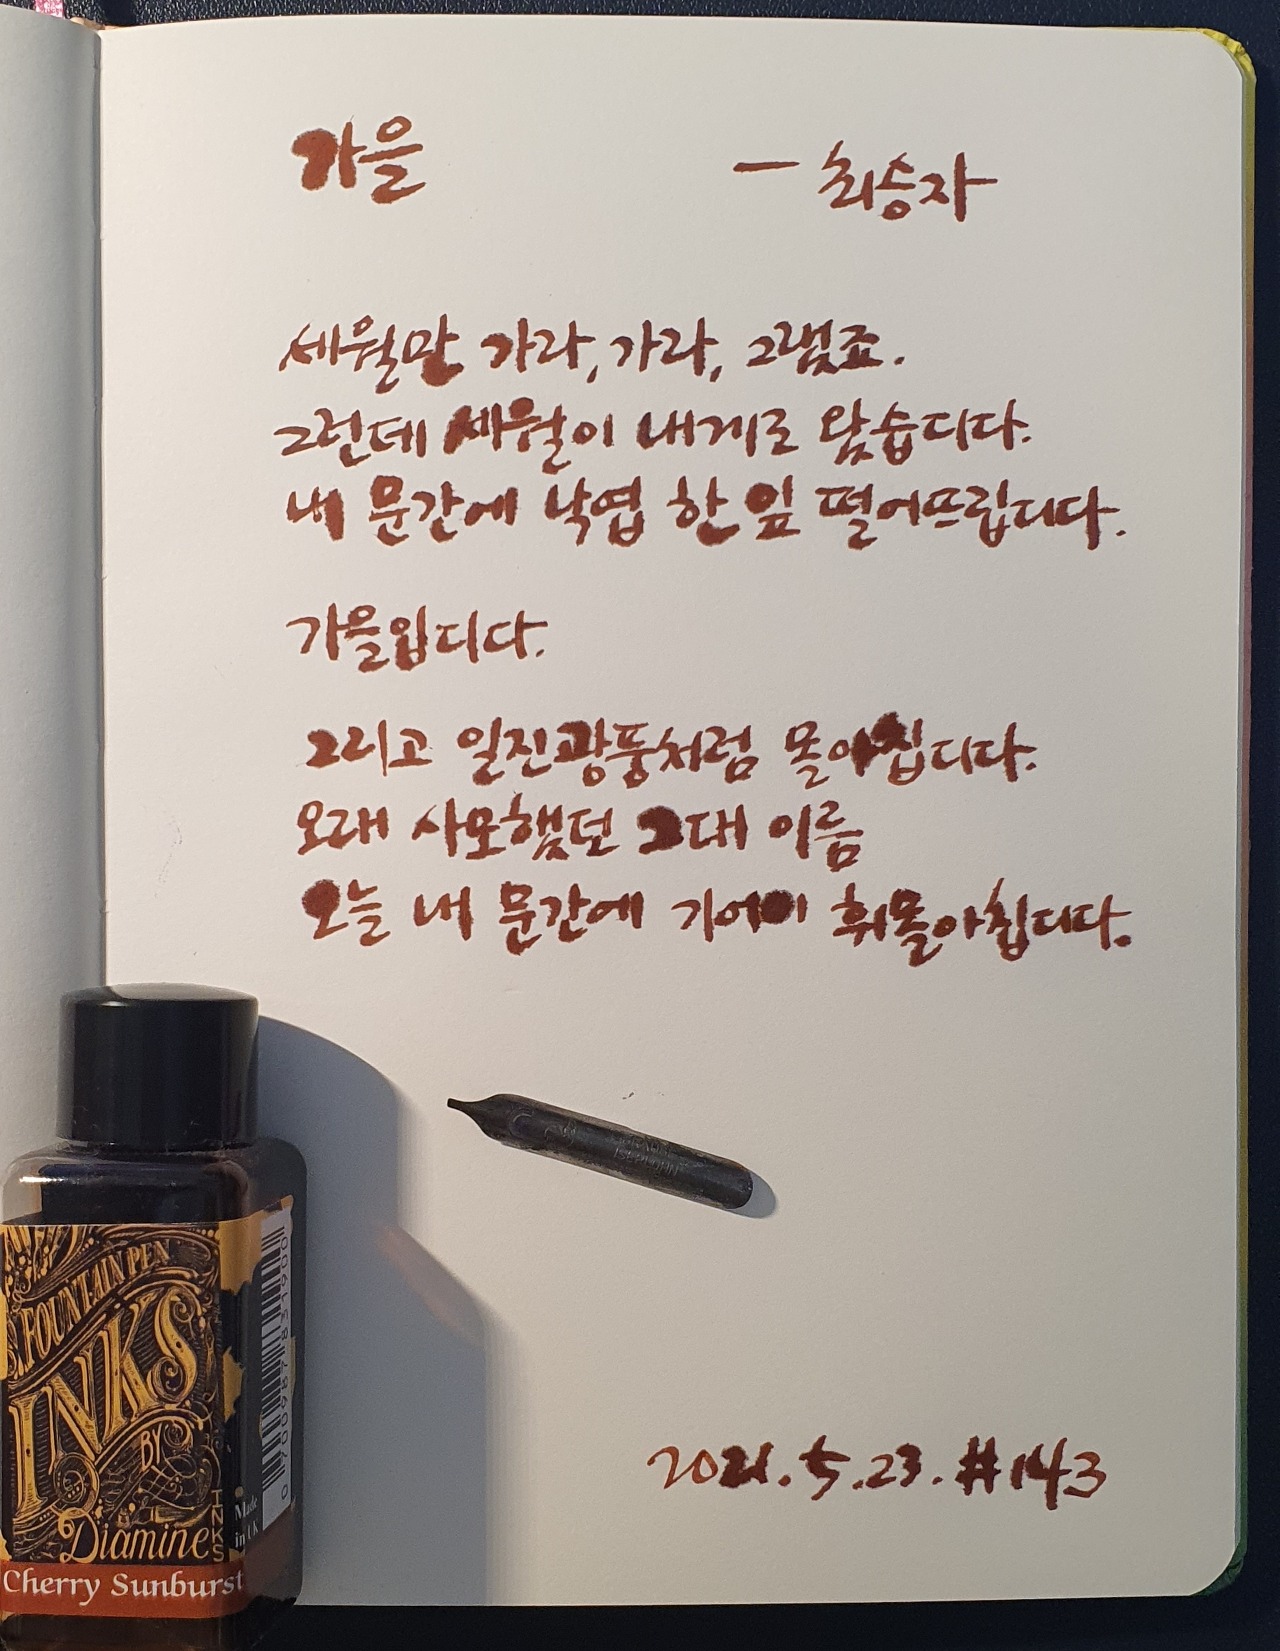 가을 — 최승자
세월만 가라, 가라, 그랬죠.
그런데 세월이 내게로 왔습디다.
내 문간에 낙엽 한 잎 떨어뜨립디다.
가을입디다.
그리고 일진광풍처럼 몰아칩디다.
오래 사모했던 그대 이름
오늘 내 문간에 기어이 휘몰아칩디다.
2021.5.23. #143
FOUNTAIN PEN
INKS
BY
Diamine
INKS
Made
in UK
Cherry Sunburst